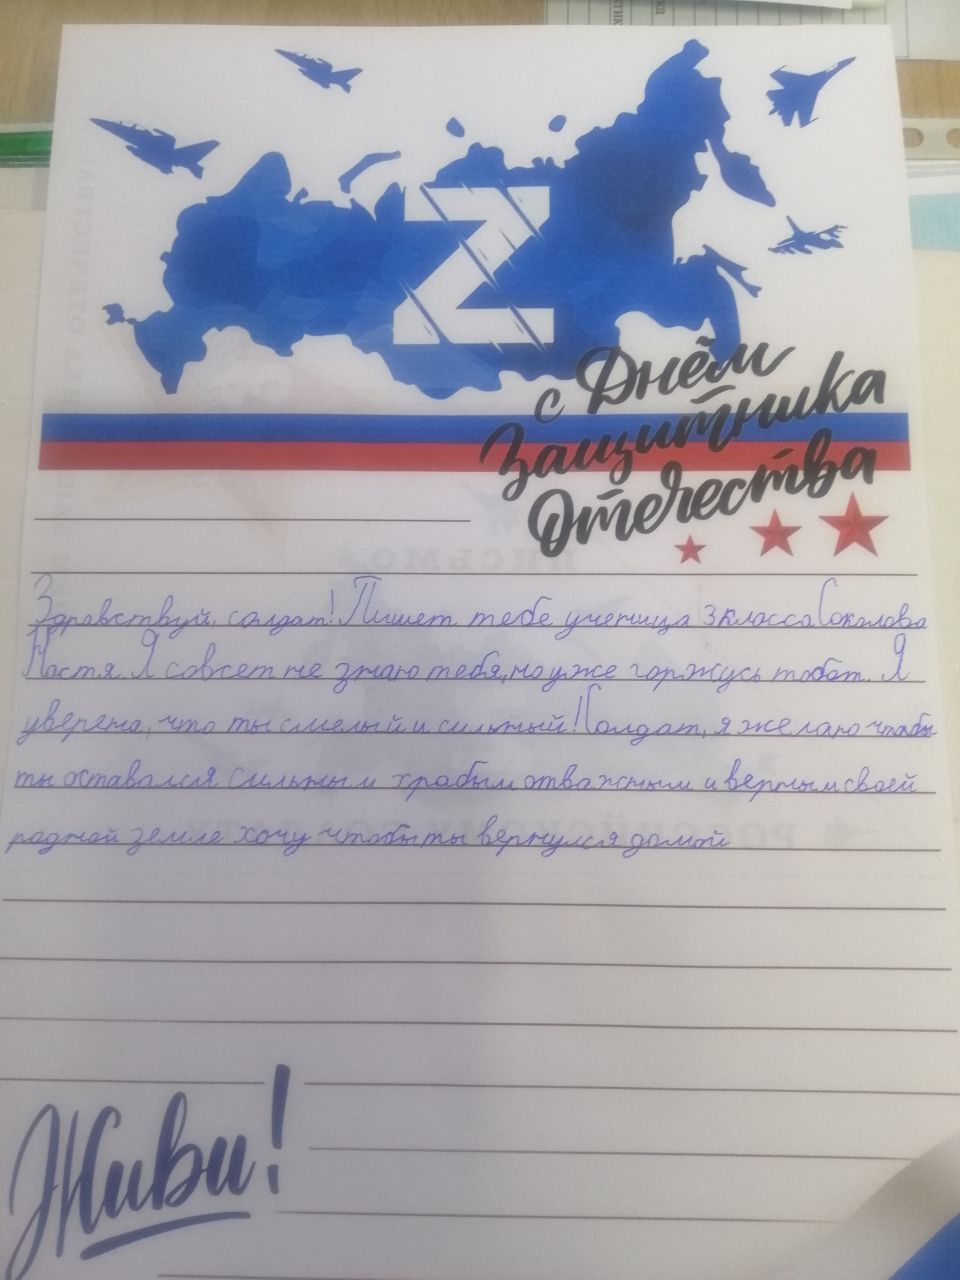 Z
с Днём
Защитника
Отечества
Здравствуй, солдат! Пишет тебе ученица 3 класса Соколова
Настя. Я совсем не знаю тебя, но уже горжусь тобой. Я
уверена, что ты смелый и сильный! Солдат, я желаю чтобы
ты оставался сильным храбрым отважным и верным своей
родной земле хочу чтобы ты вернулся домой
Живи!